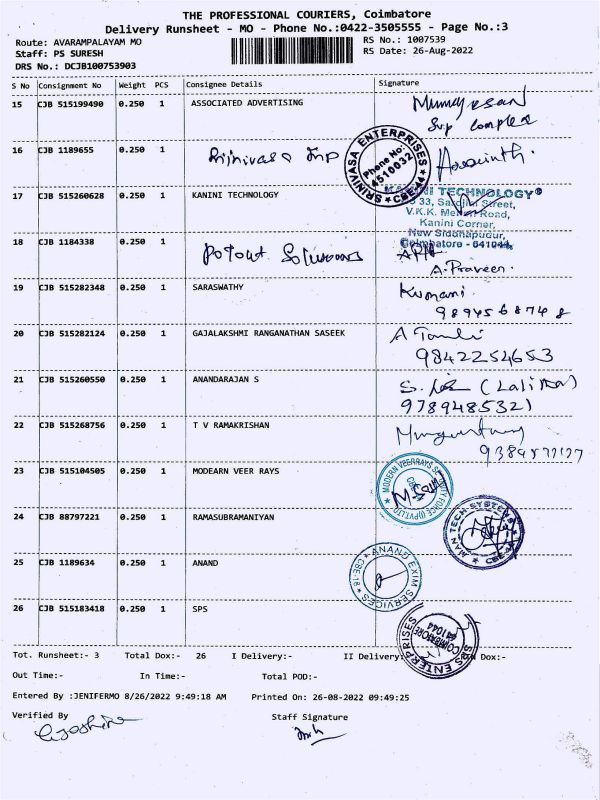 THE PROFESSIONAL COURIERS, Coimbatore
Delivery Runsheet - MO - Phone No.:0422-3505555 - Page No.:3
Route: AVARAMPALAYAM MO
RS No.: 1007539
Staff: PS SURESH
RS Date: 26-Aug-2022
DRS No.: DCJB100753903
S No Consignment No Weight PCS Consignee Details Signature
15 CJB 515199490 0.250 1 ASSOCIATED ADVERTISING
Svp complex
16 CJB 1189655 0.250 1 Srinivasa Imp
SRINIVASA ENTERPRISES
Phone No: 4510032
★ CBE-44 ★
17 CJB 515260628 0.250 1 KANINI TECHNOLOGY
KANINI TECHNOLOGY®
33, Street,
V.K.K. Menon Road,
Kanini Corner,
New Siddhapudur,
Coimbatore - 641044.
18 CJB 1184338 0.250 1 Solutions
A. Praveen.
19 CJB 515282348 0.250 1 SARASWATHY
Kumani
9894568748
20 CJB 515282124 0.250 1 GAJALAKSHMI RANGANATHAN SASEEK
9842254653
21 CJB 515260550 0.250 1 ANANDARAJAN S
9789485321
22 CJB 515268756 0.250 1 T V RAMAKRISHAN
23 CJB 515104505 0.250 1 MODEARN VEER RAYS
MODERN VEERRAYS SECURITY FORCE (I) PVT LTD
24 CJB 88797221 0.250 1 RAMASUBRAMANIYAN
MAN TECH SYSTEMS
CBE-44
25 CJB 1189634 0.250 1 ANAND
ANAND EXIM SERVICES
★ CBE-18 ★
26 CJB 515183418 0.250 1 SPS
SPS ENTERPRISES
COIMBATORE
641044
Tot. Runsheet:- 3 Total Dox:- 26 I Delivery:- II Delivery: Dox:-
Out Time:- In Time:- Total POD:-
Entered By :JENIFERMO 8/26/2022 9:49:18 AM Printed On: 26-08-2022 09:49:25
Verified By Staff Signature